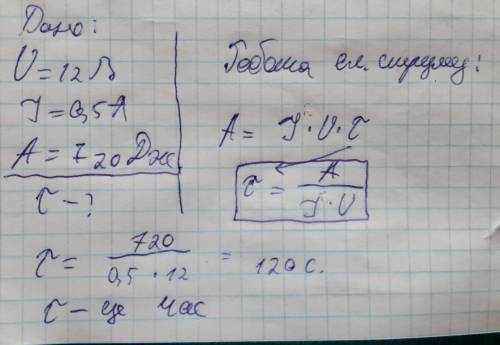 Дано:
U = 12 В
I = 0,5 А
A = 720 Дж
τ - ?
Робота ел. струму:
A = I · U · τ
τ = A / I · U
τ = 720 / 0,5 · 12 = 120 с.
τ - це час